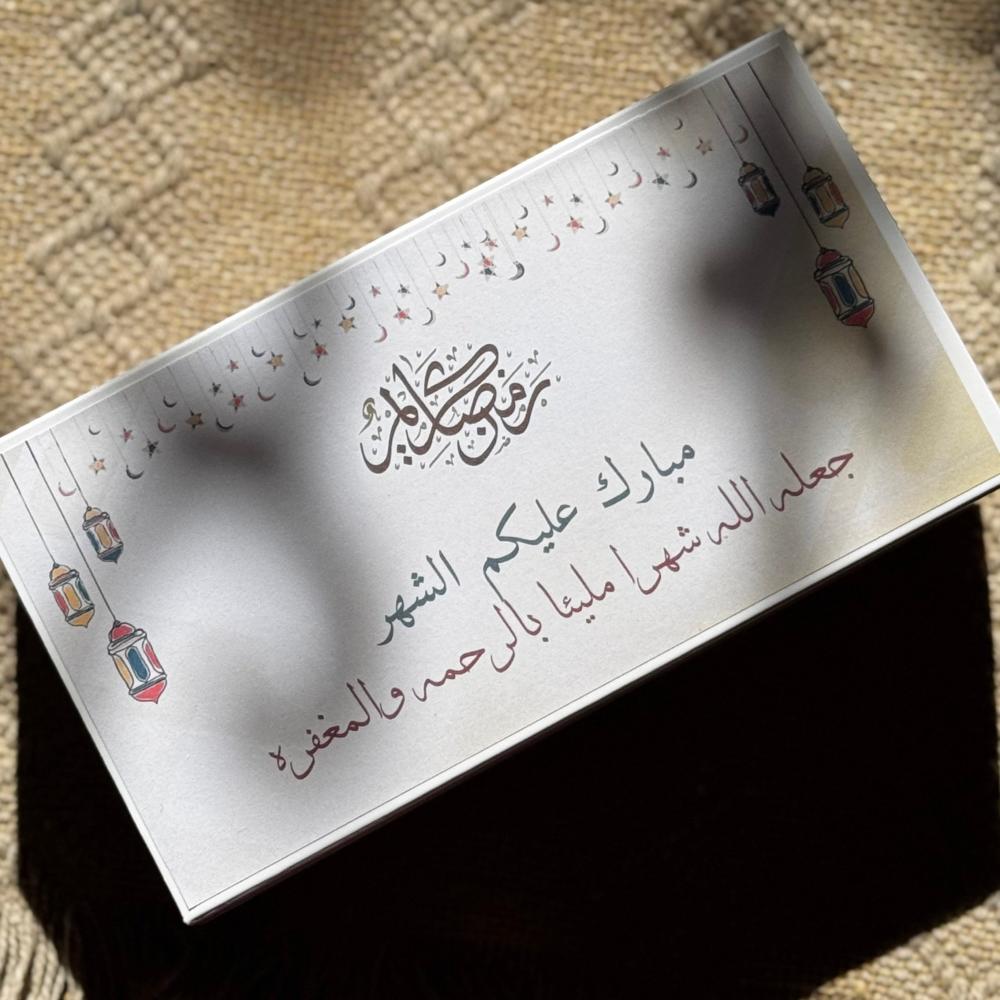 رمضان كريم
مبارك عليكم الشهر
جعله الله شهرا مليئا بالرحمه والمغفره